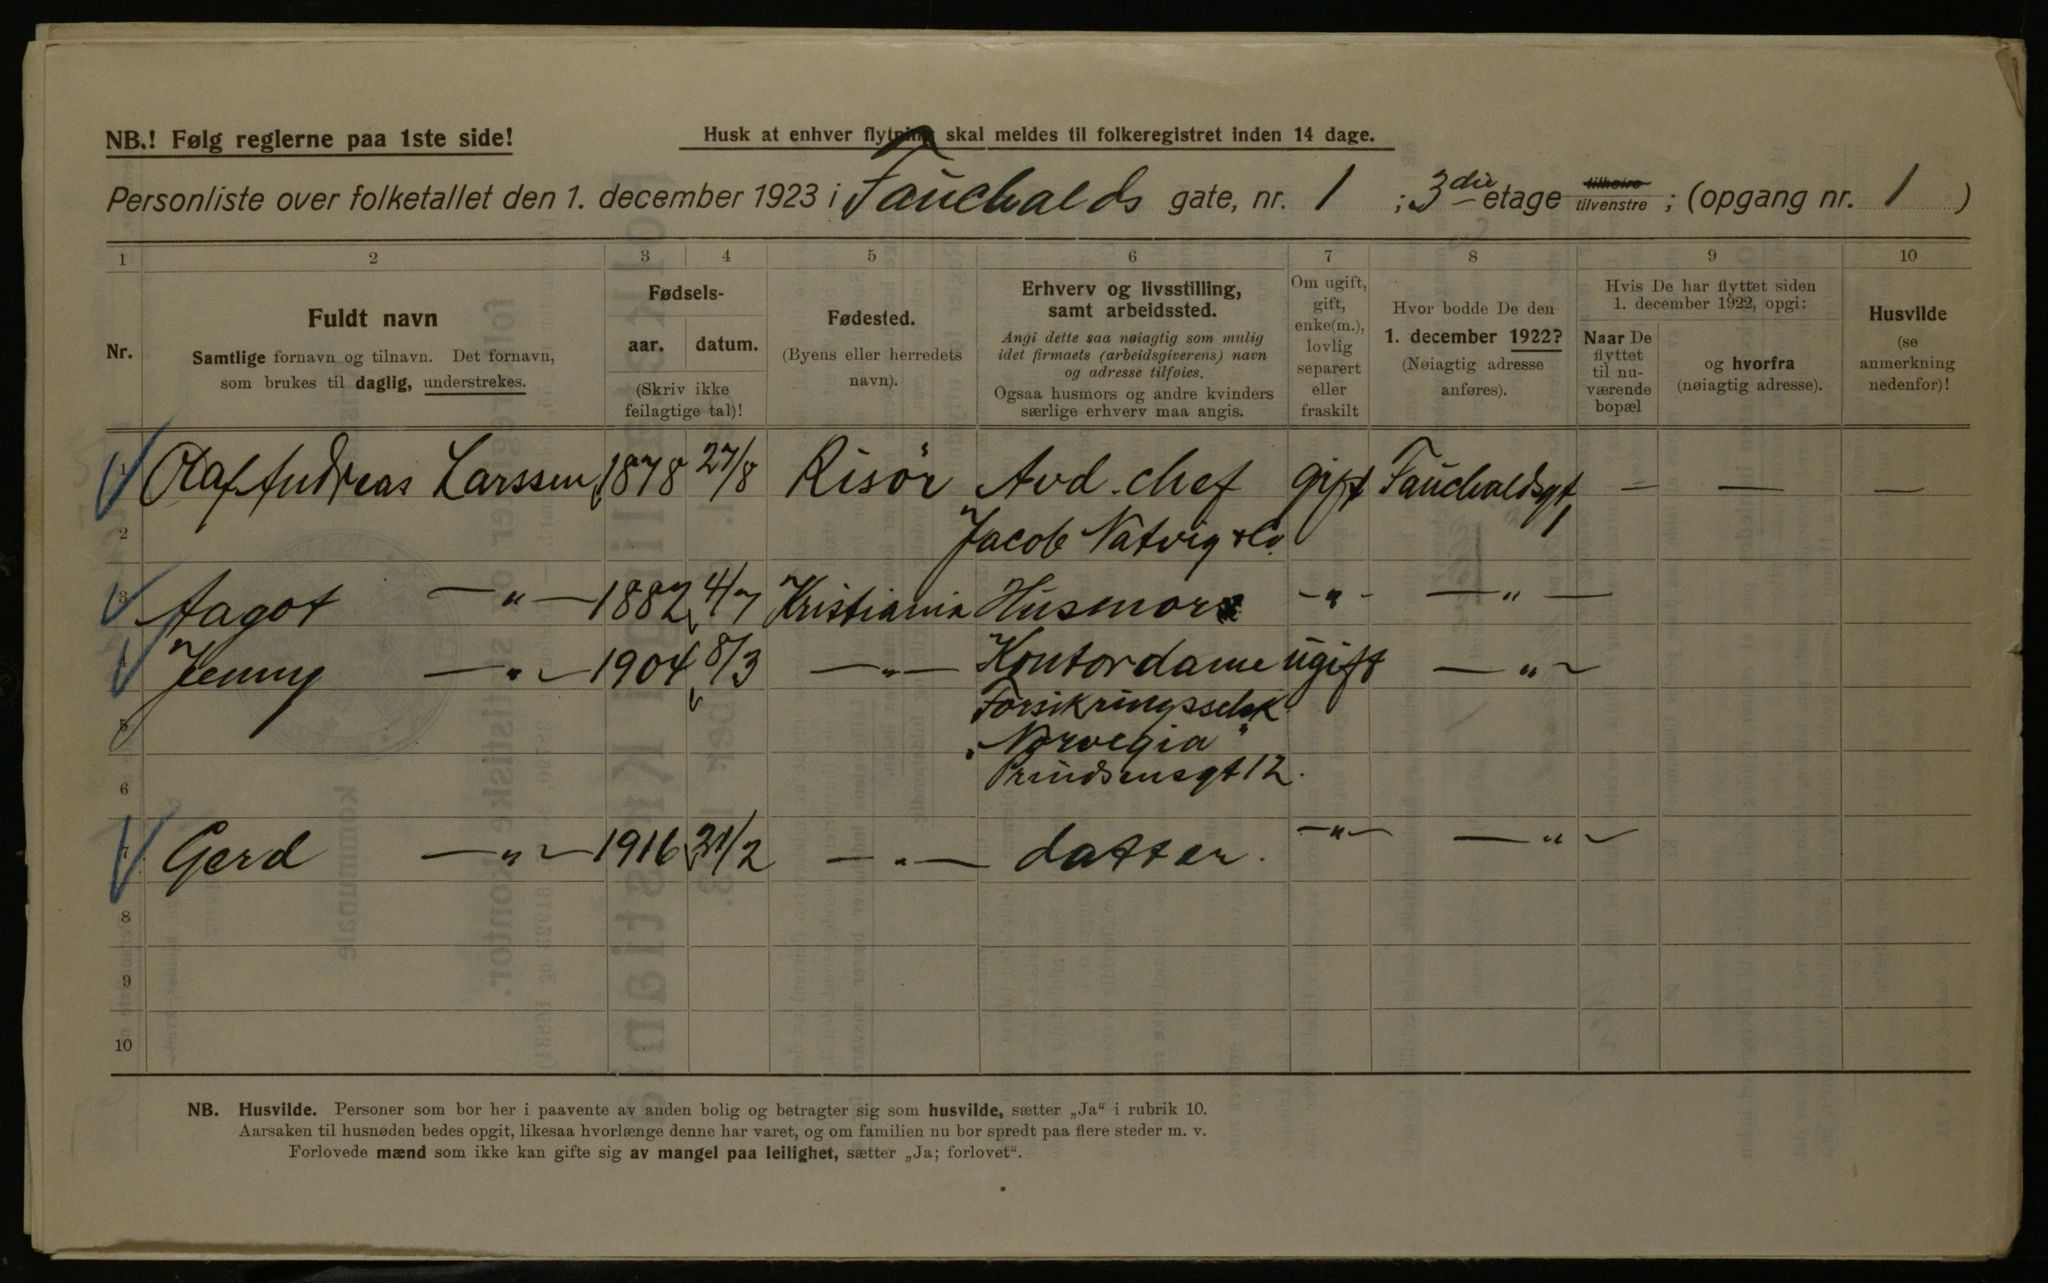 NB.! Følg reglerne paa 1ste side!
Husk at enhver flytning skal meldes til folkeregistret inden 14 dage.
Personliste over folketallet den 1. december 1923 i Fauchalds gate, nr. 1 ; 3die etage tilhøire tilvenstre ; (opgang nr. 1 )
1 2 3 4 5 6 7 8 9 10
Nr.
Fuldt navn
Samtlige fornavn og tilnavn. Det fornavn,
som brukes til daglig, understrekes.
Fødsels-
aar. datum.
(Skriv ikke
feilagtige tal)!
Fødested.
(Byens eller herredets
navn).
Erhverv og livsstilling,
samt arbeidssted.
Angi dette saa nøiagtig som mulig
idet firmaets (arbeidsgiverens) navn
og adresse tilføies.
Ogsaa husmors og andre kvinders
særlige erhverv maa angis.
Om ugift,
gift,
enke(m.),
lovlig
separert
eller
fraskilt
Hvor bodde De den
1. december 1922?
(Nøiagtig adresse
anføres).
Hvis De har flyttet siden
1. december 1922, opgi:
Naar De
flyttet
til nu-
værende
bopæl
og hvorfra
(nøiagtig adresse).
Husvilde
(se
anmerkning
nedenfor)!
1 Olaf Andreas Larssen 1878 27/8 Risör Avd. chef gift Fauchaldsgt, 1 — — —
2 Jacob Natvig & Co.
3 Aagot —"— 1882 4/7 Kristiania Husmor -"- —"—
4 Jenny —"— 1904 8/3 —"— Kontordame ugift —"—
Forsikringsselsk
5 "Norvegia"
6 Prindsensgt 12.
7 Gerd —"— 1916 21/2 —"— datter. —"— —"—
8
9
10
NB. Husvilde. Personer som bor her i paavente av anden bolig og betragter sig som husvilde, sætter „Ja“ i rubrik 10.
Aarsaken til husnøden bedes opgit, likesaa hvorlænge denne har varet, og om familien nu bor spredt paa flere steder m. v.
Forlovede mænd som ikke kan gifte sig av mangel paa leilighet, sætter „Ja; forlovet“.